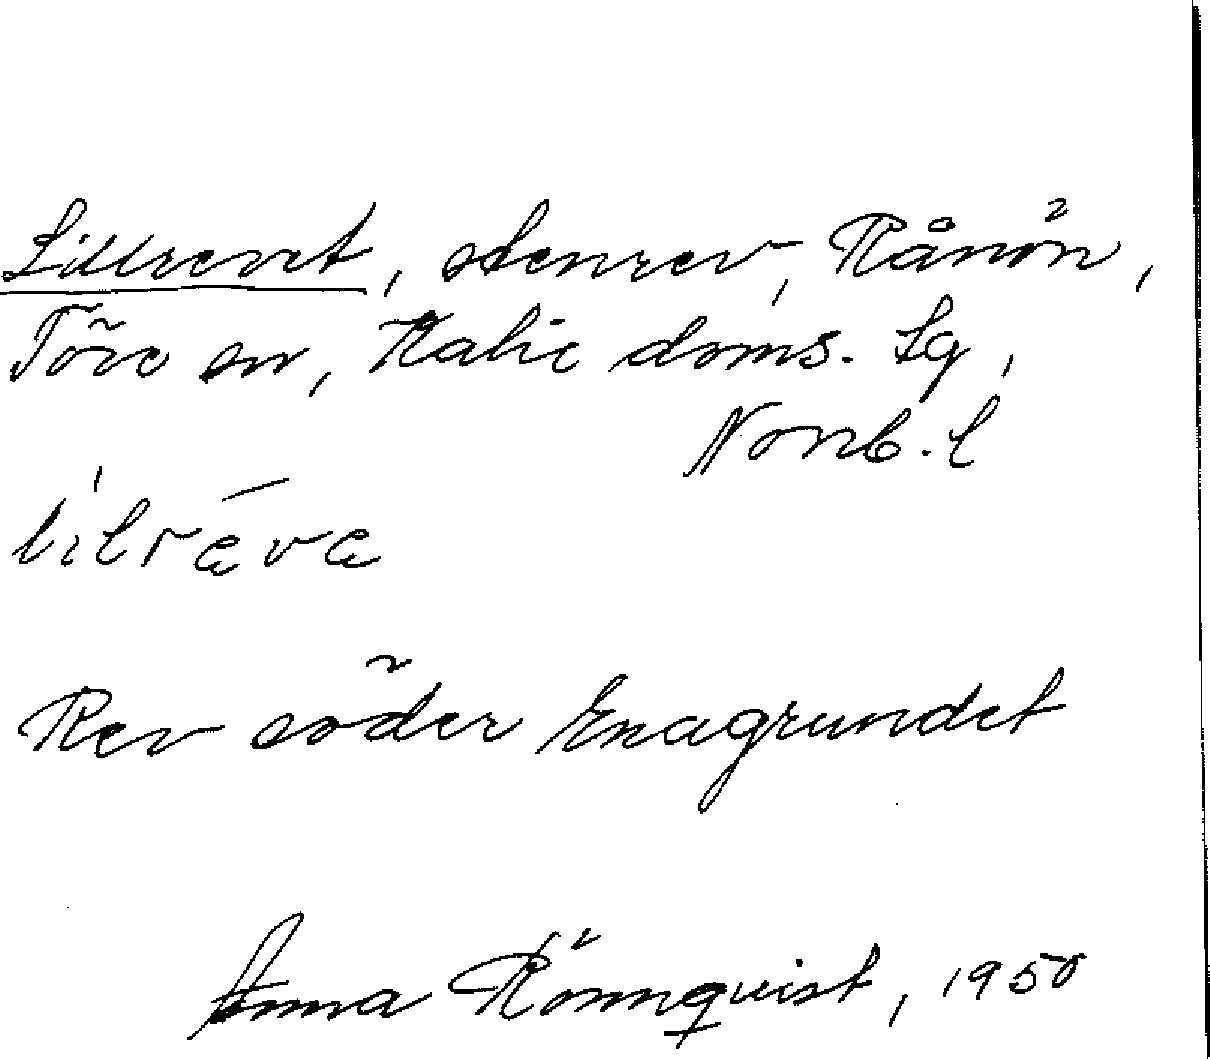 Lillrevet, stenrev, Rånön,
Töre sn, Kalix doms. lg,
Norrb. l
Rev söder Enagrundet
Anna Rönnquist, 1950